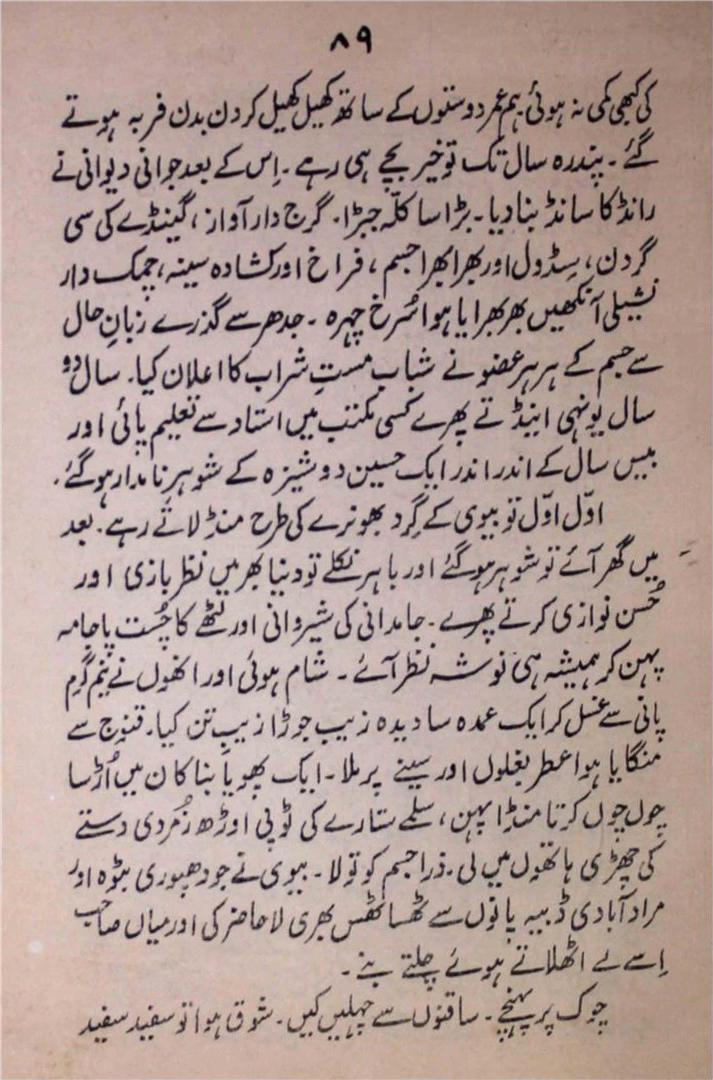 ۸۹
کی کبھی کمی نہ ہوئی ہم عمر دوستوں کے ساتھ کھیل کھیل کر دن بدن فربہ ہوتے
گئے ۔ پندرہ سال تک تو خیر بچے ہی رہے ۔ اِس کے بعد جوانی دیوانی نے
رانڈ کا سانڈ بنا دیا ۔ بڑا سا کلّہ جبڑا ۔ گرج دار آواز ، گینڈے کی سی
گردن ، سِڈول اور بھرا بھرا جسم ، فراخ اور کشادہ سینہ ، چمک دار
نشیلی آنکھیں بھربھرایا ہوا سُرخ چہرہ ۔ جدھر سے گذرے زبانِ حال
سے جسم کے ہر ہر عضو نے شباب مستِ شراب کا اعلان کیا ۔ سال دو
سال یونہی اینڈتے پھرے کسی مکتب میں استاد سے تعلیم پائی اور
بیس سال کے اندر اندر ایک حسین دوشیزہ کے شوہر نامدار ہو گئے ۔
اوّل اوّل تو بیوی کے گِرد بھونرے کی طرح منڈلاتے رہے ۔ بعد
میں گھر آئے تو شوہر ہو گئے اور باہر نکلے تو دنیا بھر میں نظر بازی اور
حُسن نوازی کرتے پھرے ۔ جامدانی کی شیروانی اور لٹھے کا چُست پاجامہ
پہن کر ہمیشہ ہی نوشہ نظر آئے ۔ شام ہوئی اور انھوں نے نیم گرم
پانی سے غسل کر ایک عمدہ سا دیدہ زیب جوڑا زیبِ تن کیا ۔ قنوج سے
منگایا ہوا عطر بغلوں اور سینے پر ملا ۔ ایک پھویا بنا کان میں اُڑسا
چوں چوں کرتا منڈا پہن ، سلمے ستارے کی ٹوپی اوڑھ زمُردی دستے
کی چھڑی ہاتھوں میں لی ۔ ذرا جسم کو تولا ۔ بیوی نے جودھپوری بٹوہ اور
مراد آبادی ڈبیہ پانوں سے ٹھسا ٹھس بھری لا حاضر کی اور میاں صاحب
اِسے لے اٹھلاتے ہوئے چلتے بنے ۔
چوک پر پہنچے ۔ ساقنوں سے چہلیں کیں ۔ شوق ہوا تو سفید سفید